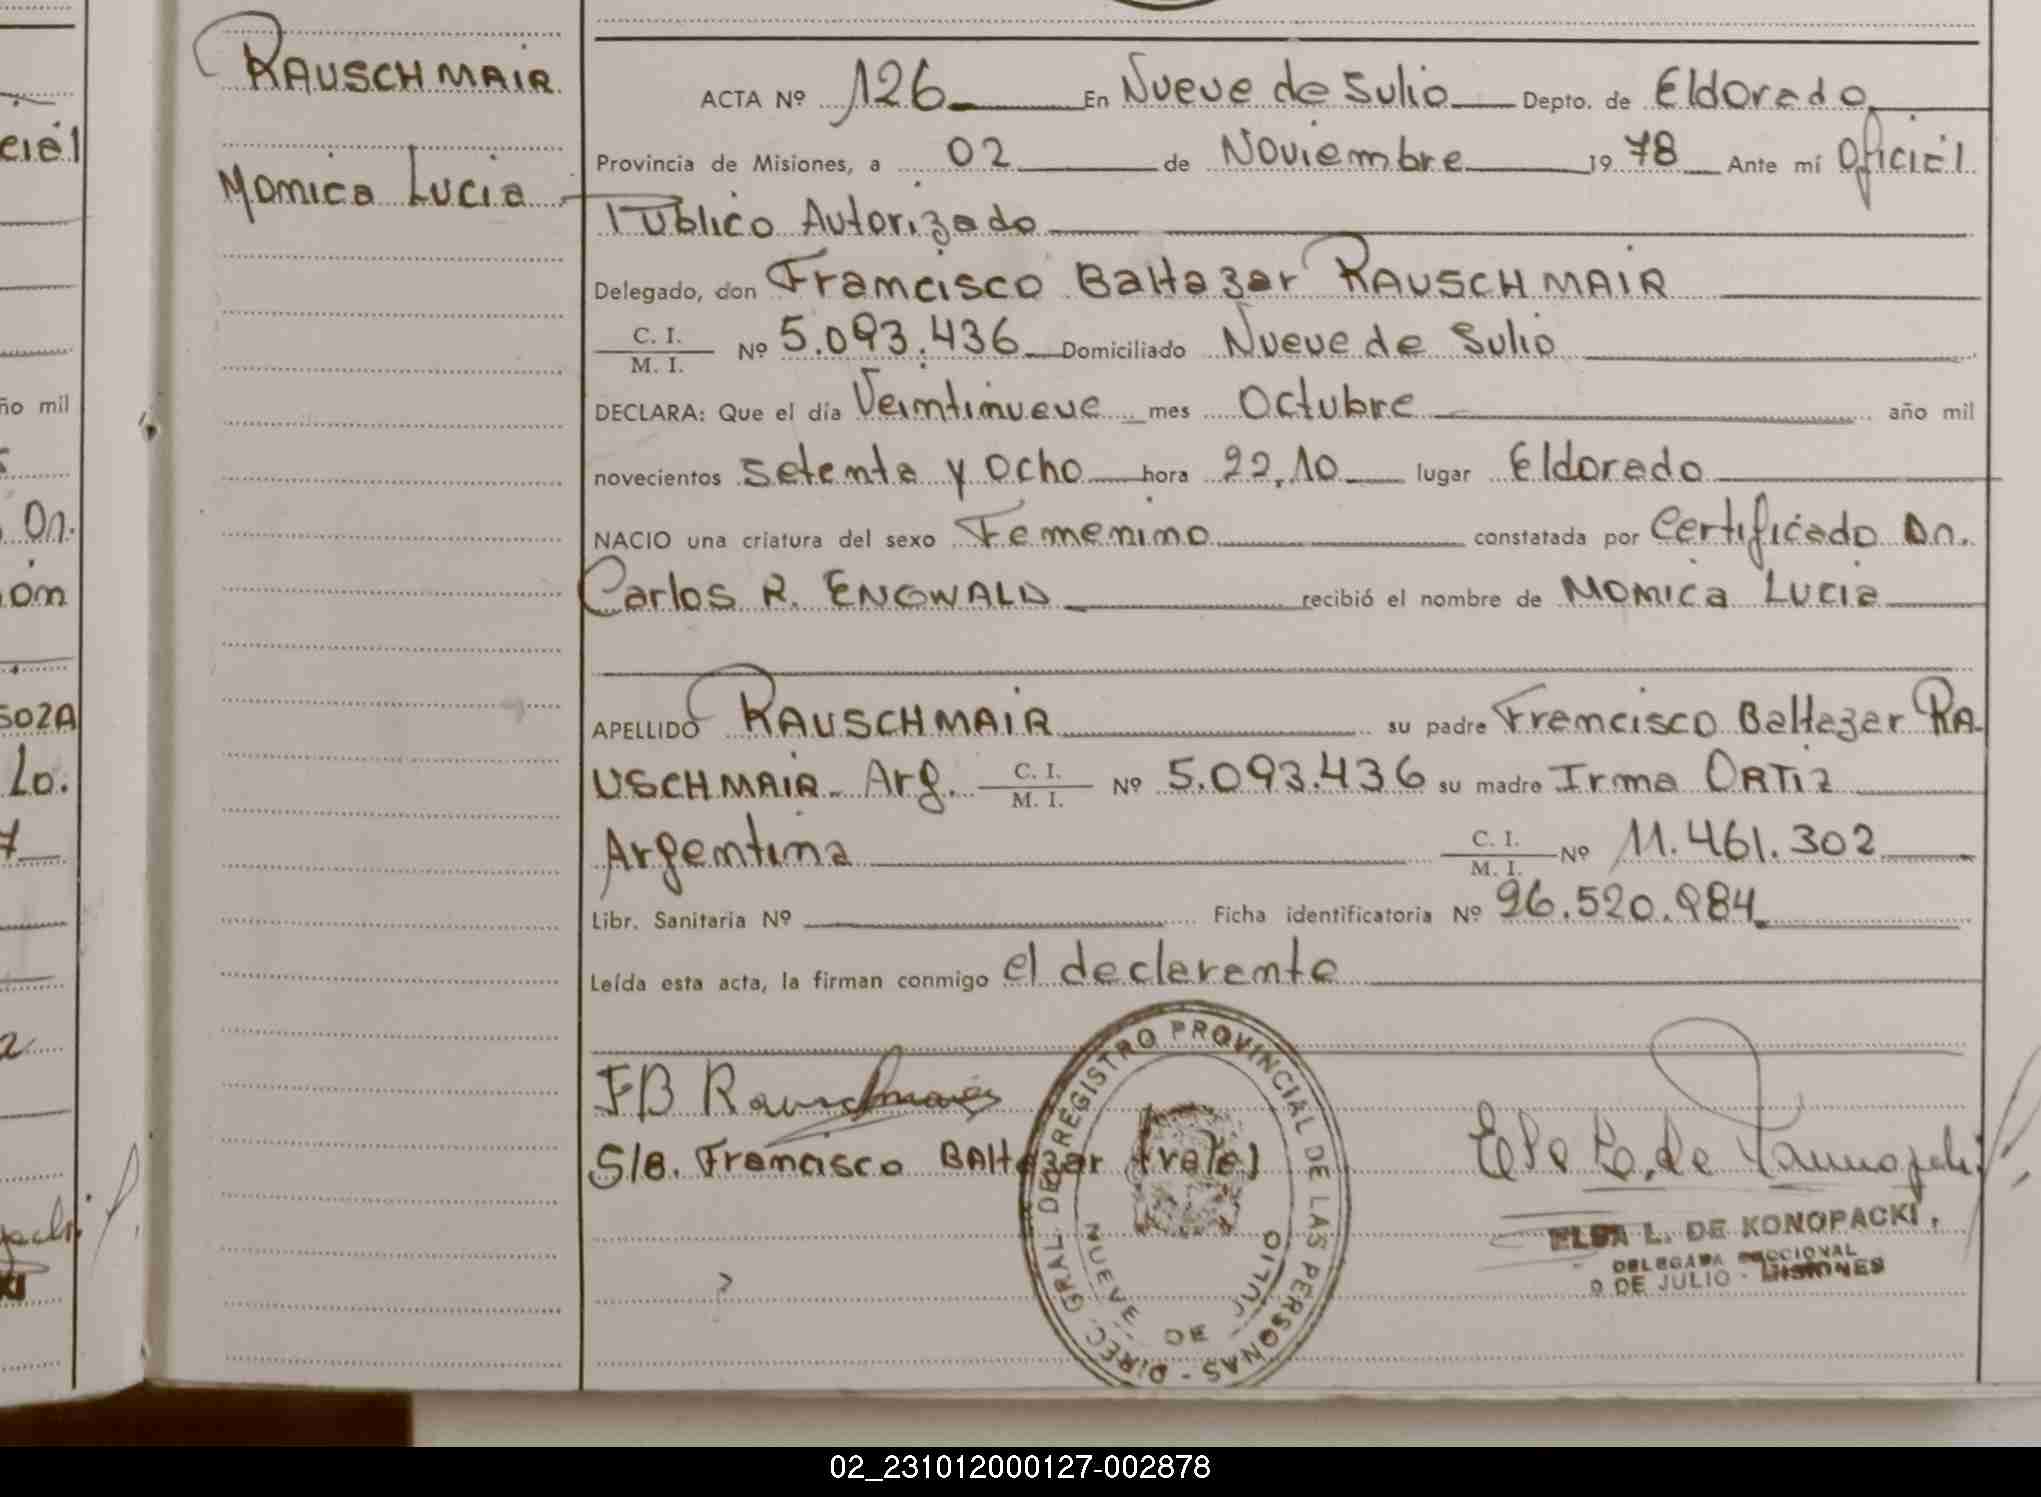 RAUSCHMAIR
Monica Lucia
ACTA Nº 126 En Nueve de Julio Depto. de Eldorado
Provincia de Misiones, a 02 de Noviembre 1978 Ante mí Oficial
Publico Autorizado
Delegado, don Francisco Baltazar RAUSCHMAIR
C. I.
M. I. Nº 5.093.436 Domiciliado Nueve de Julio
DECLARA: Que el día Veintinueve mes Octubre año mil
novecientos setenta y ocho hora 22,10 lugar Eldorado
NACIO una criatura del sexo Femenino constatada por Certificado Dn.
Carlos R. ENGWALD recibió el nombre de Monica Lucia
APELLIDO RAUSCHMAIR su padre Francisco Baltazar RA-
USCHMAIR - Arg. C. I. M. I. Nº 5.093.436 su madre Irma ORTIZ
Argentina C. I. M. I. Nº 11.461.302
Libr. Sanitaria Nº Ficha identificatoria Nº 26.520.984
Leída esta acta, la firman conmigo el declarante
FB Rauschmair
S/B. Francisco BAltazar (vale)
DIREC. GRAL. DE REGISTRO PROVINCIAL DE LAS PERSONAS -
NUEVE DE JULIO
ELSA L. DE KONOPACKI
DELEGADA SECCIONAL
9 DE JULIO - MISIONES
ño mil
On.
ón
SOZA
Lo.
02_231012000127-002878